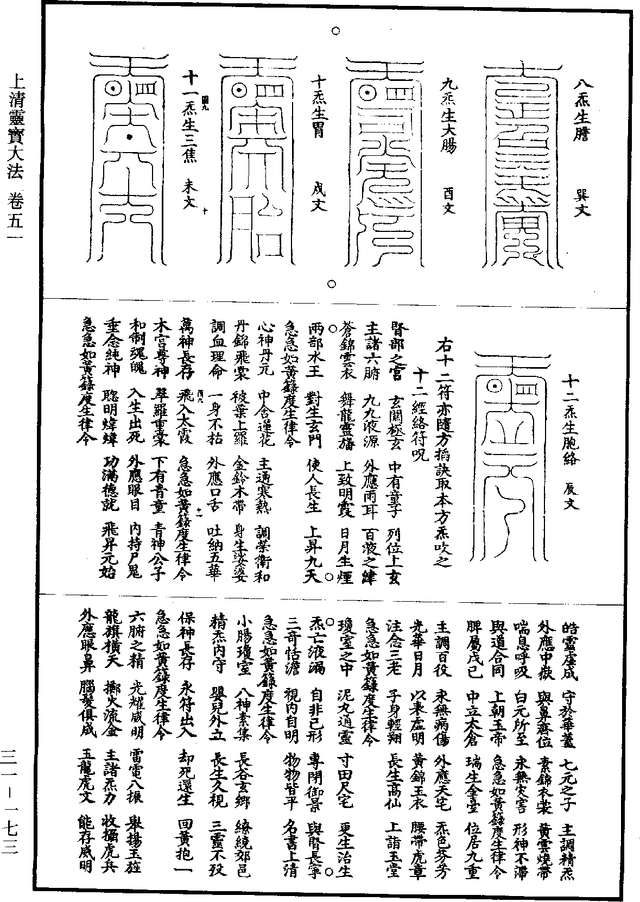 上清靈寶大法　卷五一
八炁生膽　巽文
九炁生大腸　酉文
十炁生胃　戌文
十一炁生三焦　未文
十二炁生胞絡　辰文
右十二符亦隨方掐訣取本方炁吹之
十二經絡符呪
腎部之宮　玄闕極玄　中有童子　列位上玄
主諸六腑　九九液源　外應兩耳　百液之緯
蒼錦雲衣　舞龍靈旛　上致明霞　日月生煙
兩部水王　對生玄門　使人長生　上昇九天
急急如黃籙度生律令
心神丹元　中含蓮花　主通寒熱　調榮衛和
丹錦飛裳　披葉上羅　金鈴木帶　身生婆娑
調血理命　一身不枯　外應口舌　吐納五華
萬神長存　飛入太霞　急急如黃籙度生律令
木宮尊神　翠羅重裳　下有青童　青神公子
和制魂魄　入生出死　外應眼目　內持尸鬼
垂念純神　聰明煒煒　功滿德就　飛昇元始
急急如黃籙度生律令
皓靈虛成　守於華蓋　七元之子　主調精炁
外應中嶽　與鼻齊位　素錦衣裳　黃雲燒帶
喘息呼吸　白元所至　永無災害　形神不滯
與道合同　上朝玉帝　急急如黃籙度生律令
脾屬戊己　中立太倉　瑞生金臺　位居九重
主調百役　永無病傷　外應天宅　炁色芬芳
光華日月　以來虛明　黃錦玉衣　腰帶虎章
注念三老　子身輕翔　長生高仙　上詣玉堂
急急如黃籙度生律令
瓊室之中　泥丸通靈　寸田尺宅　更生治生
炁亡液漏　自非己形　專閉御景　與腎長寧
三奇恬澹　視內自明　物物皆平　名書上清
急急如黃籙度生律令
小腸瓊室　八神素集　長谷玄鄉　繚繞郊邑
精炁內守　嬰兒外立　長生久視　三靈不歿
保神長存　永符出入　却死還生　回黃抱一
急急如黃籙度生律令
六腑之精　光耀威明　雷電八振　舉揚玉旌
龍旗橫天　擲火流金　主諸炁力　收攝虎兵
外應眼鼻　腦髮俱成　玉龍虎文　能存威明
三一－一七三